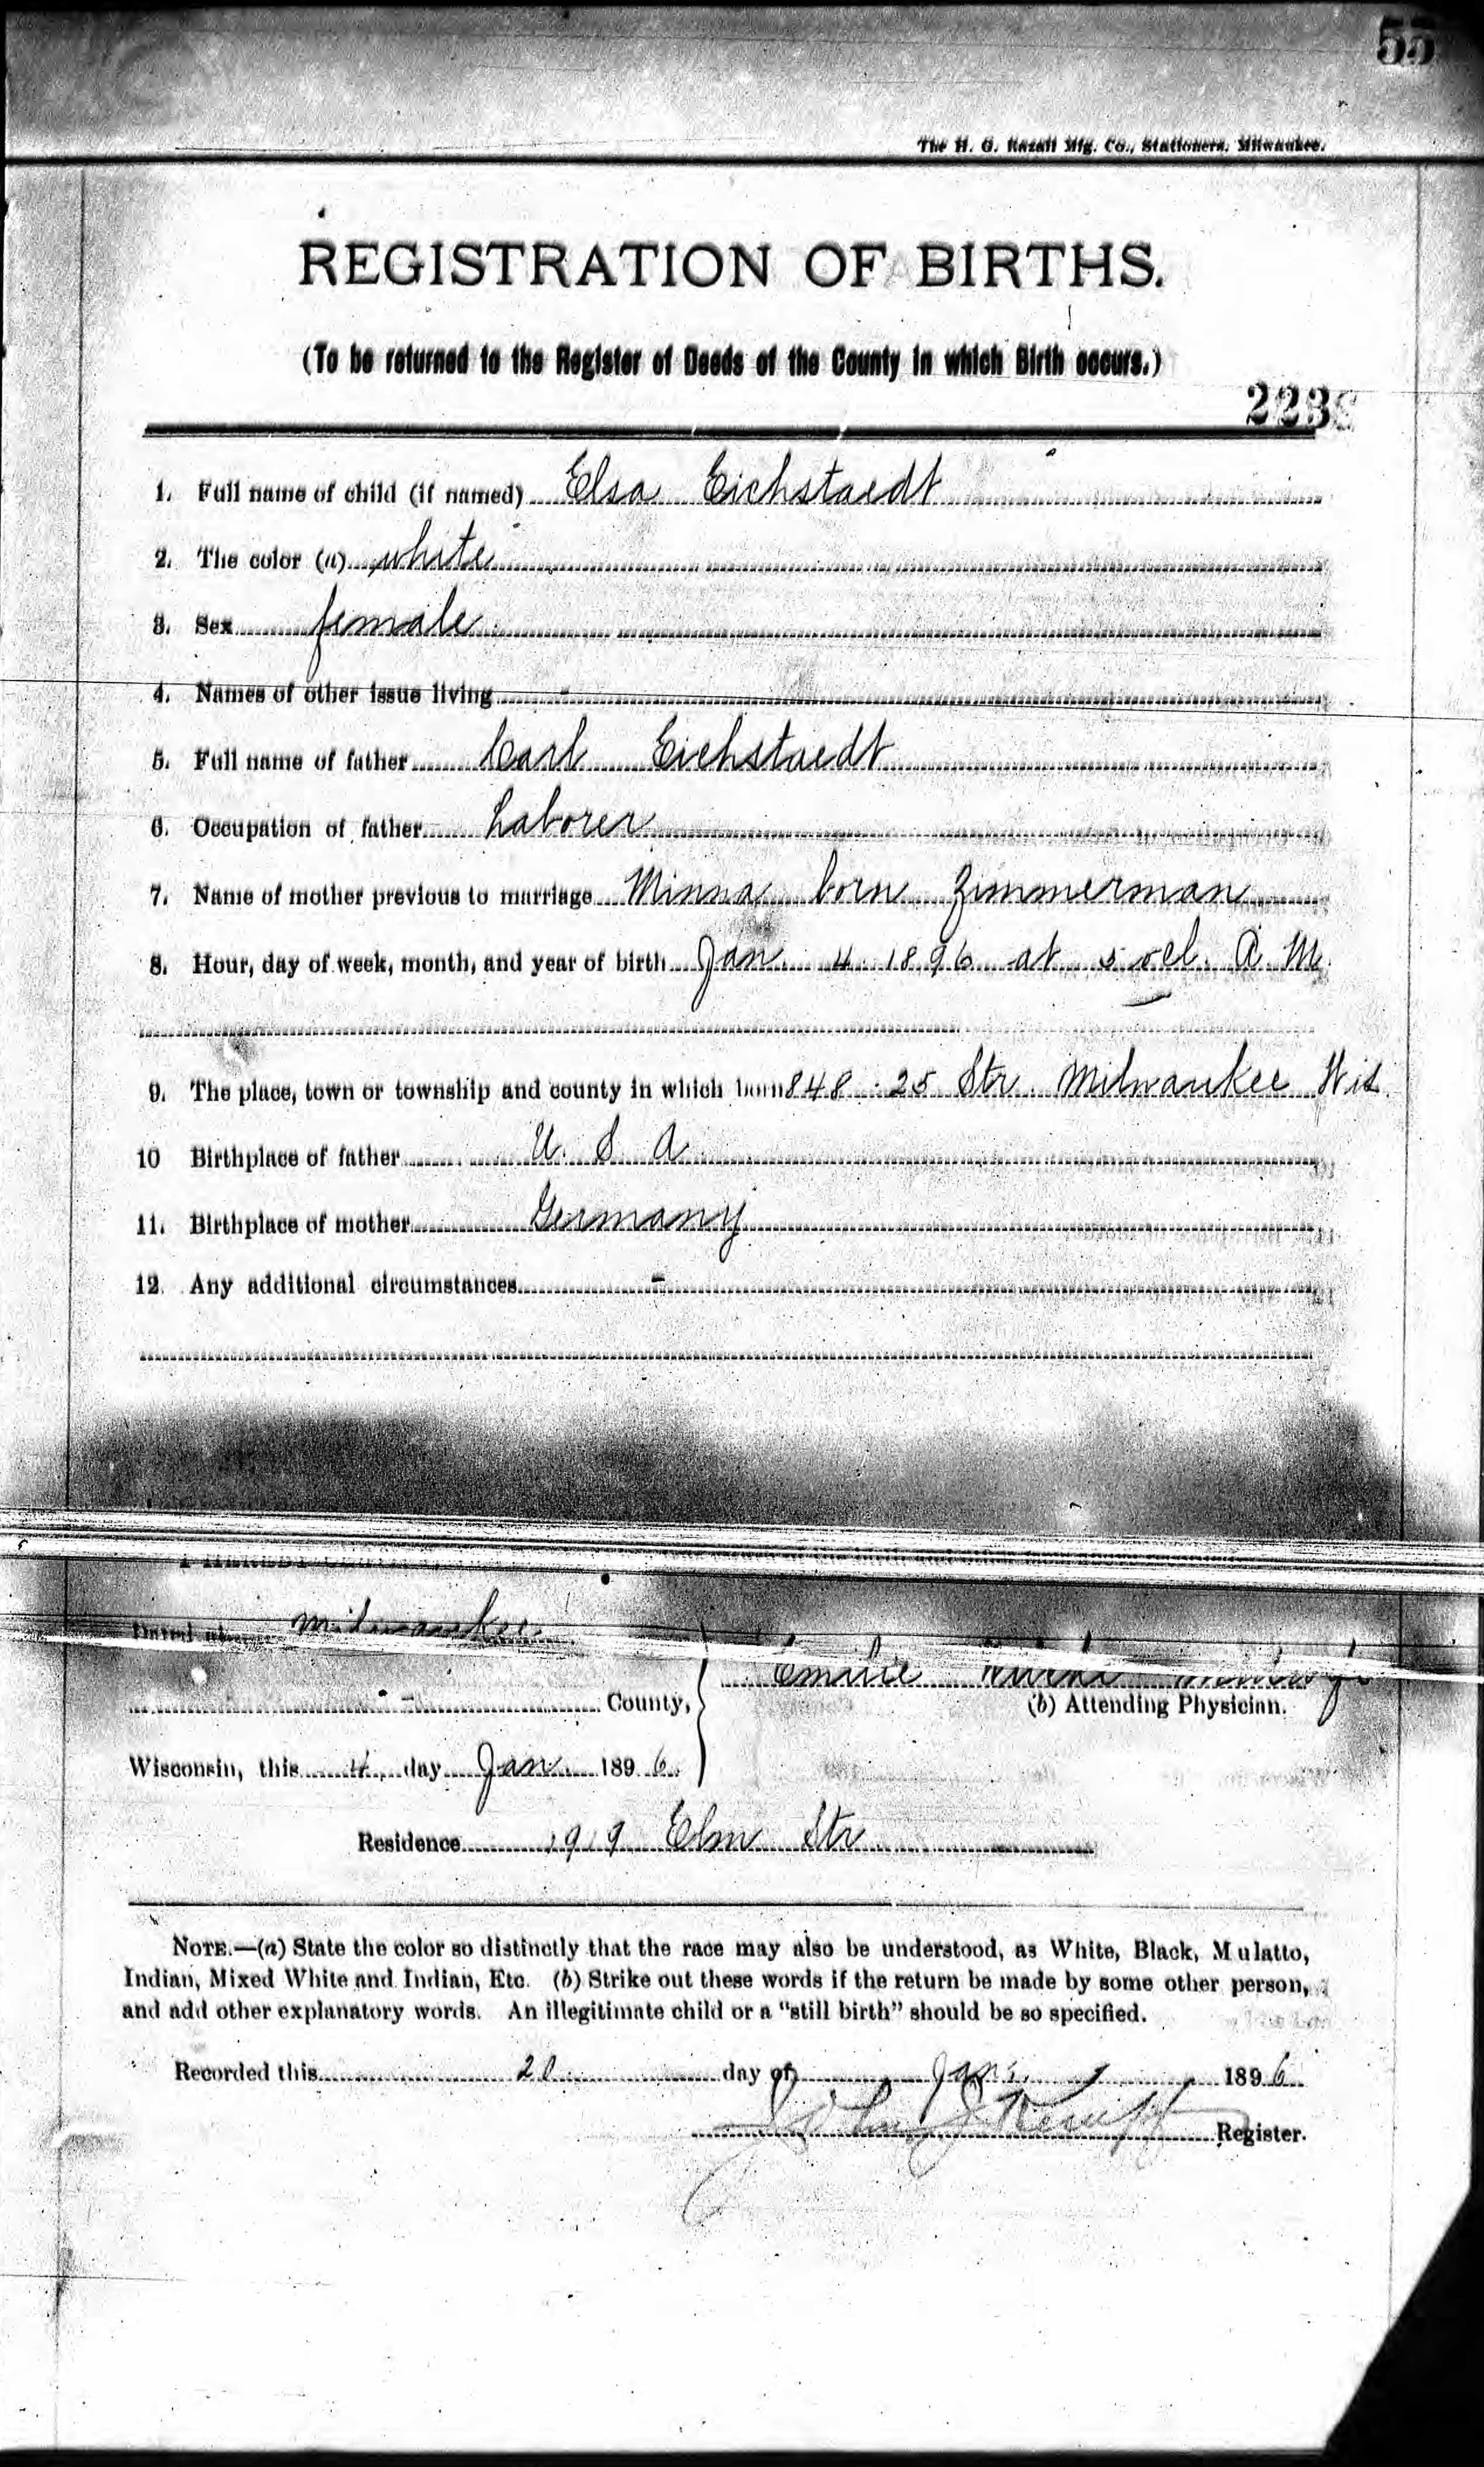 55
The H. G. Razall Mfg. Co., Stationers, Milwaukee.
REGISTRATION OF BIRTHS.
(To be returned to the Register of Deeds of the County in which Birth occurs.)
223
1. Full name of child (if named) Elsa Eichstaedt
2. The color (a) white
3. Sex female
4. Names of other issue living -
5. Full name of father Carl Eichstaedt
6. Occupation of father Laborer
7. Name of mother previous to marriage Minna born Zimmerman
8. Hour, day of week, month, and year of birth Jan. 4 1896 at 5 ocl. A. M.
9. The place, town or township and county in which born 848 - 25 Str. Milwaukee Wis.
10 Birthplace of father U. S. A
11. Birthplace of mother Germany
12. Any additional circumstances -
Dated at Milwaukee
Emilie
County,
(b) Attending Physician.
Wisconsin, this 4. day Jan. 1896.
Residence 1919 Elm Str.
NOTE.—(a) State the color so distinctly that the race may also be understood, as White, Black, Mulatto,
Indian, Mixed White and Indian, Etc. (b) Strike out these words if the return be made by some other person,
and add other explanatory words. An illegitimate child or a "still birth" should be so specified.
Recorded this 20 day of Jan. 1896.
John Register.